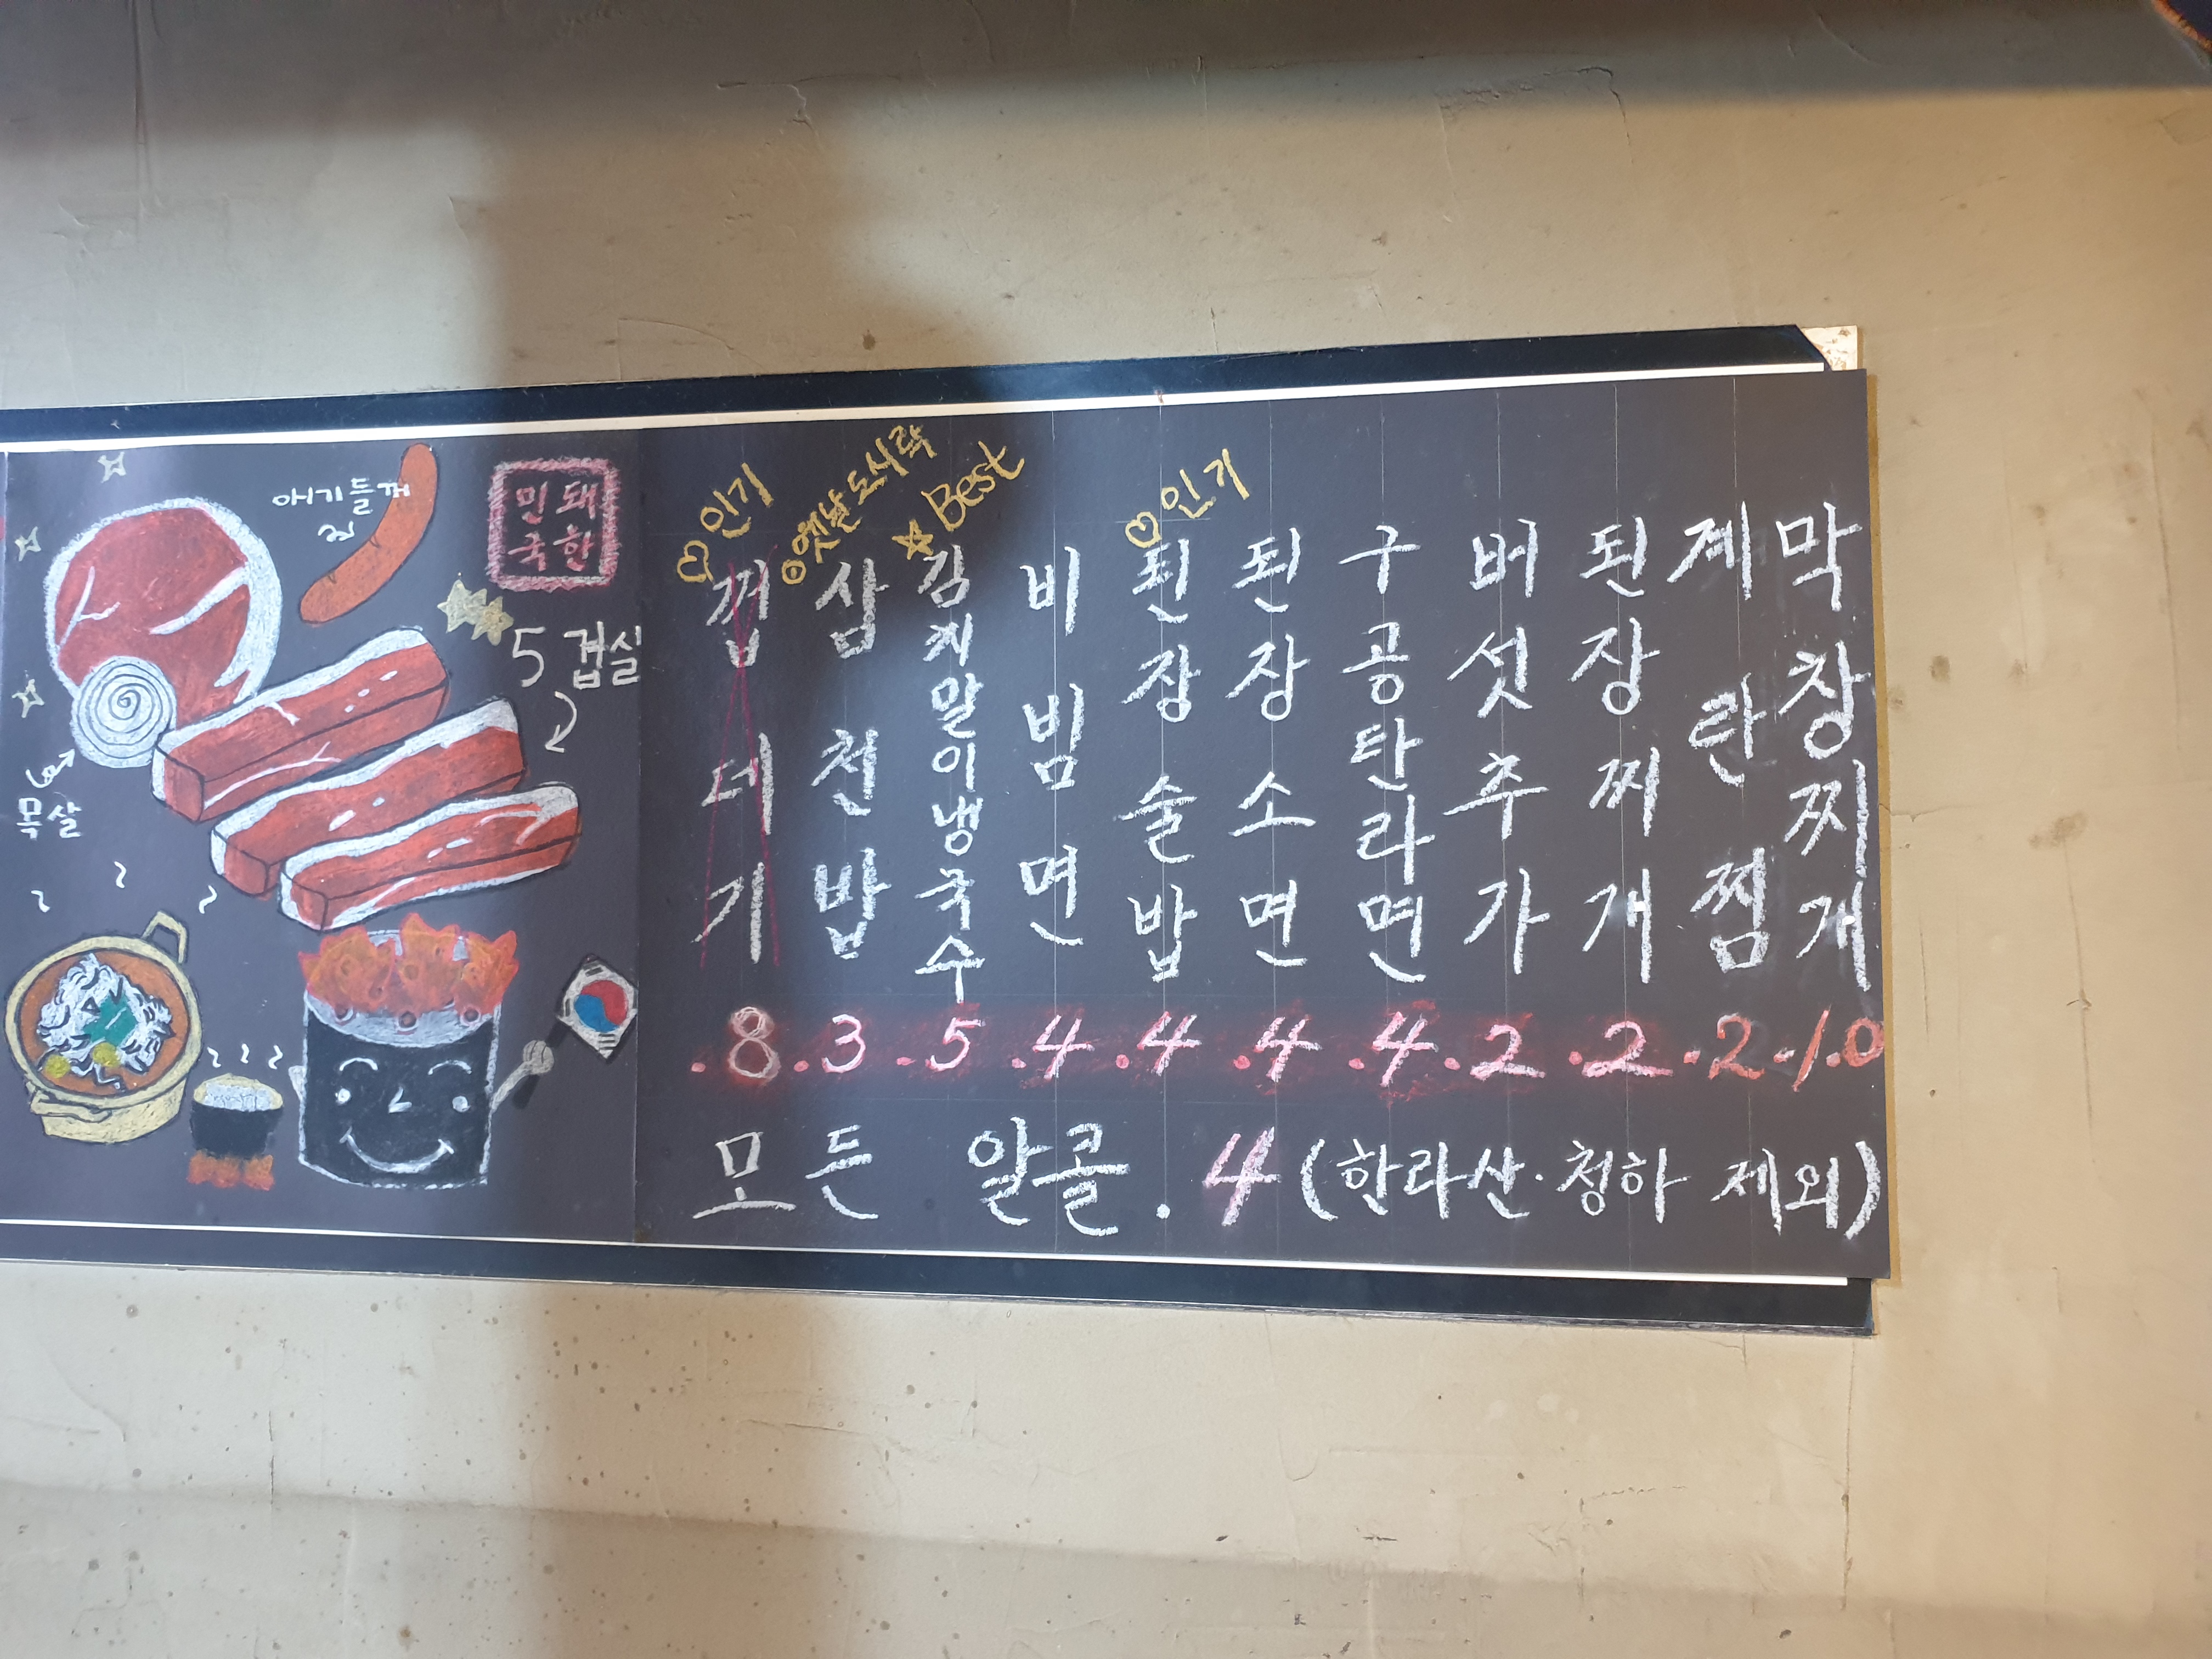 애기들꺼
민돼
국한
5겹살
목살
♡인기
⊙옛날도시락
☆Best
♡인기
껍데기
삼천밥
김치말이냉국수
비빔면
된장술밥
된장소면
구공탄라면
버섯추가
된장찌개
계란찜
막창찌개
.8 .3 .5 .4 .4 .4 .4 .2 .2 .2 -1.0
모든 알콜 .4 (한라산·청하 제외)